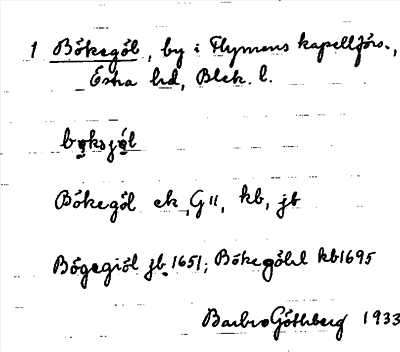 1 Bökegöl, by i Flymens kapellförs.,
Östra hd, Blek. l.
Bökegöl ek, G11, kb, jb
Bögegiöl jb 1651; Bökegöhl kb 1695
Barbro Göthberg 1933